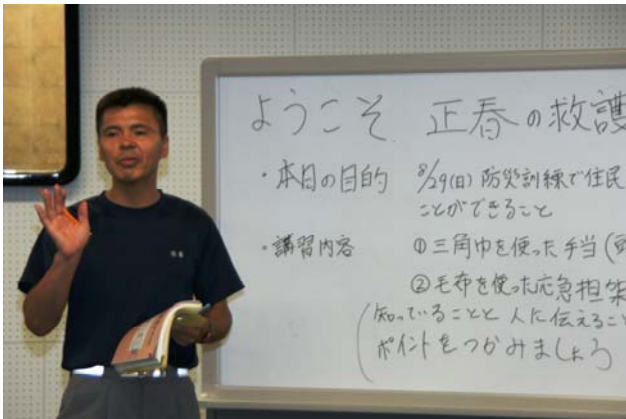 ようこそ 正春の救護
・本日の目的 8/29(日)防災訓練で住民
ことができること
・講習内容 ①三角巾を使った手当(
②毛布を使った応急担架
(知っていることと人に伝えること
ポイントをつかみましょう